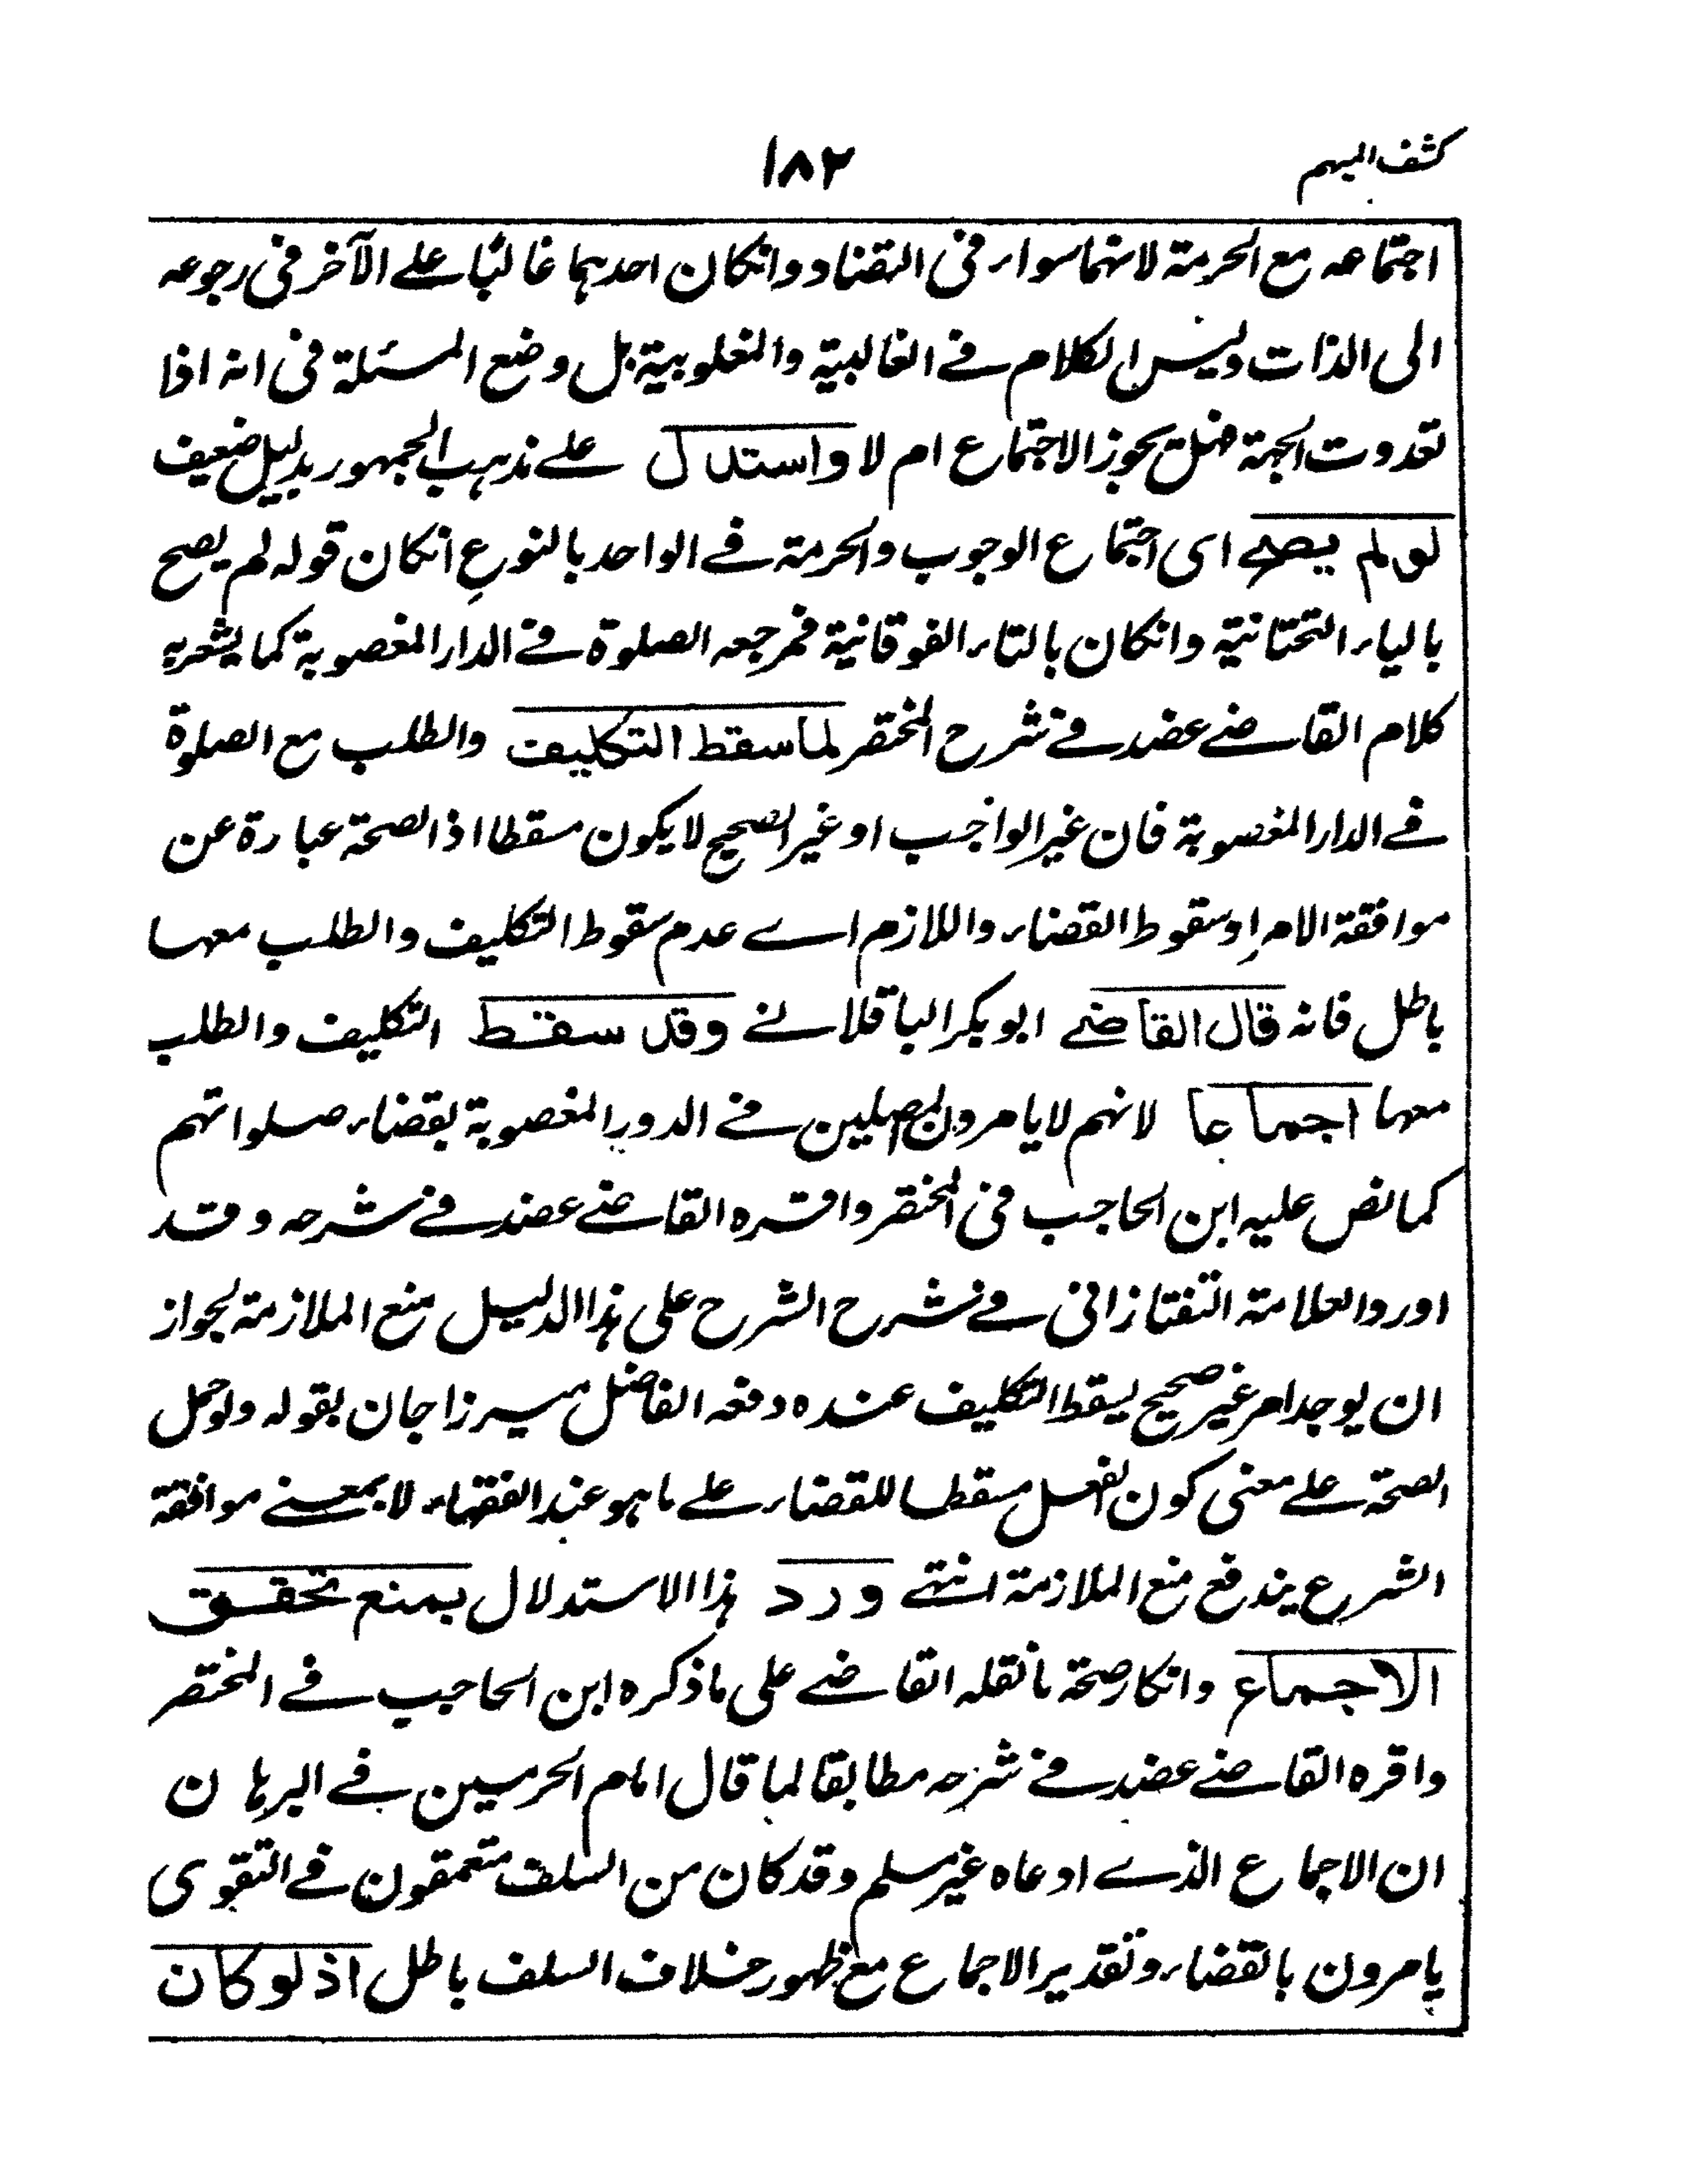 كشف المبهم
١٨٢
اجتماعه مع الحرمة لانهما سواء فى التضاد وانكان احدهما غالبا على الآخر فى رجوعه
الى الذات وليس الكلام فى الغالبية والمغلوبية بل وضع المسئلة فى انه اذا
تعددت الجهة فهل يجوز الاجتماع ام لا واستدل على مذهب الجمهور بدليل ضعيف
لو لم يصح اى اجتماع الوجوب والحرمة فى الواحد بالنوع انكان قوله لم يصح
بالياء التحتانية وانكان بالتاء الفوقانية فمرجعه الصلوة فى الدار المغصوبة كما يشعر به
كلام القاضى عضد فى شرح المختصر لما سقط التكليف والطلب مع الصلوة
فى الدار المغصوبة فان غير الواجب او غير الصحيح لا يكون مسقطا اذ الصحة عبارة عن
موافقة الامر او سقوط القضاء واللازم اى عدم سقوط التكليف والطلب معها
باطل فانه قال القاضى ابو بكر الباقلانى وقد سقط التكليف والطلب
معها اجماعا لانهم لا يامرون المصلين فى الدور المغصوبة بقضاء صلواتهم
كما نص عليه ابن الحاجب فى المختصر واقره القاضى عضد فى شرحه وقد
اورد العلامة التفتازانى فى شرح الشرح على هذا الدليل منع الملازمة لجواز
ان يوجد امر غير صحيح يسقط التكليف عنده دفعه الفاضل ميرزا جان بقوله ولو حمل
الصحة على معنى كون الفعل مسقطا للقضاء على ما هو عند الفقهاء لا بمعنى موافقة
الشرع يندفع منع الملازمة انتهى ورد هذا الاستدلال بمنع تحقق
الاجماع وانكار صحة ما نقله القاضى على ما ذكره ابن الحاجب فى المختصر
واقره القاضى عضد فى شرحه مطابقا لما قال امام الحرمين فى البرهان
ان الاجماع الذى ادعاه غير مسلم وقد كان من السلف متعمقون فى التقوى
يامرون بالقضاء وتقدير الاجماع مع ظهور خلاف السلف باطل اذ لو كان